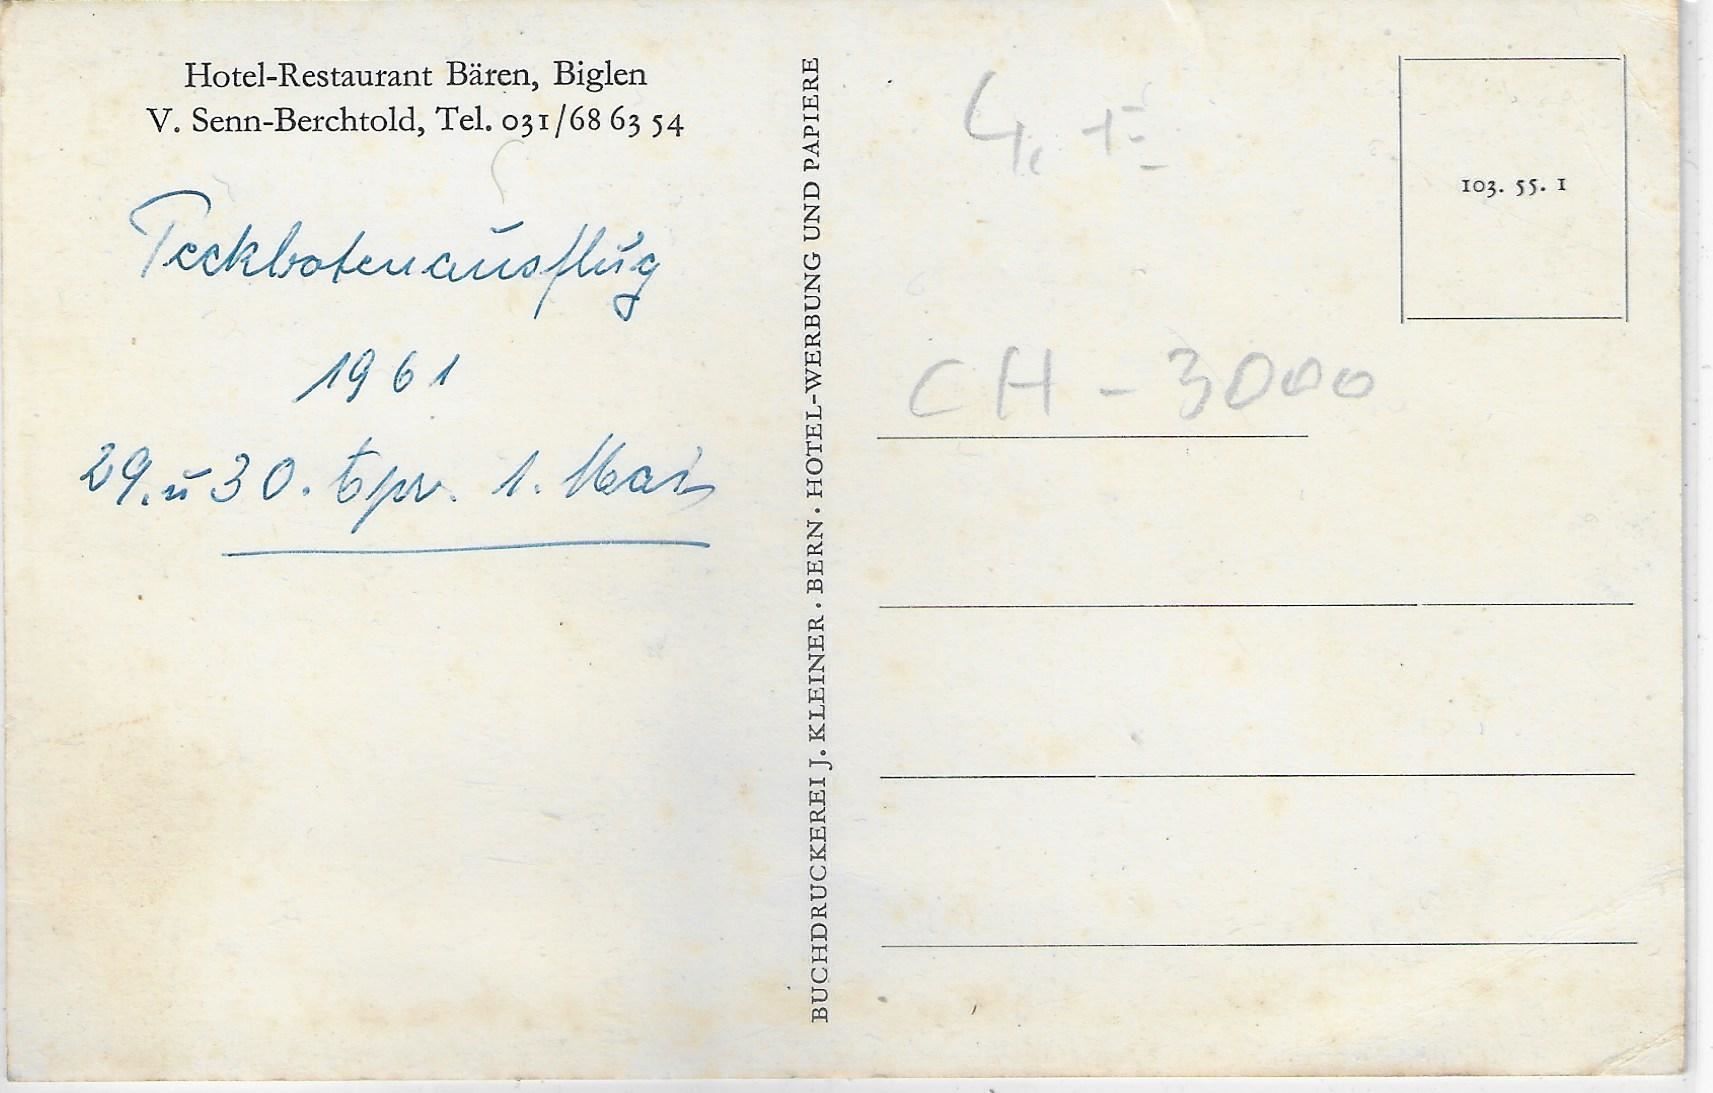 Hotel-Restaurant Bären, Biglen
V. Senn-Berchtold, Tel. 031/68 63 54
Teckbotenausflug
1961
29. u 30. Apr. 1. Mai
BUCHDRUCKEREI J. KLEINER · BERN · HOTEL-WERBUNG UND PAPIERE
103. 55. 1
CH - 3000